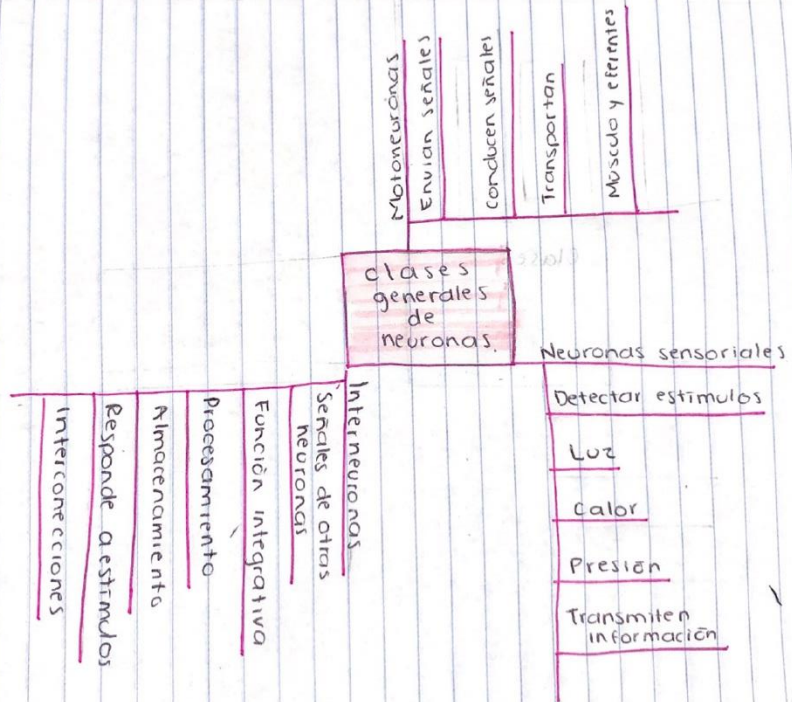 Motoneuronas
Envian señales
Conducen señales
Transportan
Músculo y eferentes
clases
generales
de
neuronas.
Neuronas sensoriales
Detectar estímulos
Luz
Calor
Presión
Transmiten
información
Interneuronas
Señales de otras
neuronas
Función integrativa
Procesamiento
Almacenamiento
Responde a estímulos
Interconecciones